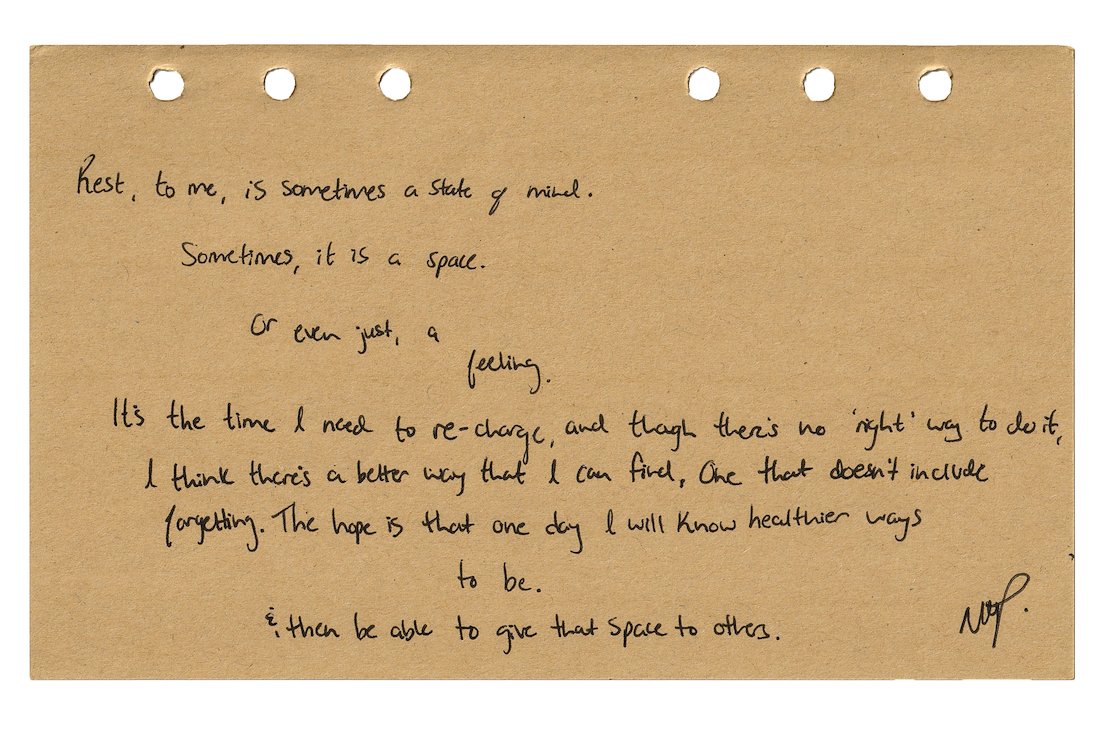 Rest, to me, is sometimes a state of mind.
Sometimes, it is a space.
Or even just, a
feeling.
It's the time I need to re-charge, and though there's no 'right' way to do it,
I think there's a better way that I can find, One that doesn't include
forgetting. The hope is that one day I will know healthier ways
to be.
&, then be able to give that space to others.